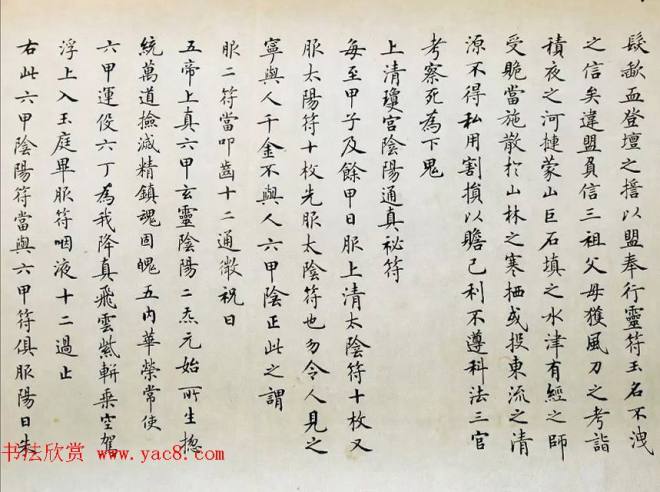 髮歃血登壇之誓以盟奉行靈符玉名不洩
之信矣違盟負信三祖父母獲風刀之考詣
積夜之河揵蒙山巨石填之水津有經之師
受貺當施散於山林之寒栖或投東流之清
源不得私用割損以贍己利不遵科法三官
考察死為下鬼
上清瓊宮陰陽通真祕符
每至甲子及餘甲日服上清太陰符十枚又
服太陽符十枚先服太陰符也勿令人見之
寧與人千金不與人六甲陰正此之謂
服二符當叩齒十二通微祝曰
五帝上真六甲玄靈陰陽二炁元始所生揔
統萬道撿滅精鎮魂固魄五內華榮常使
六甲運役六丁為我降真飛雲紫軿乘空駕
浮上入玉庭畢服符咽液十二過止
右此六甲陰陽符當與六甲符俱服陽日朱
书法欣赏 www.yac8.com